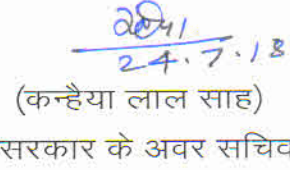 24.7.18
(कन्हैया लाल साह)
सरकार के अवर सचिव